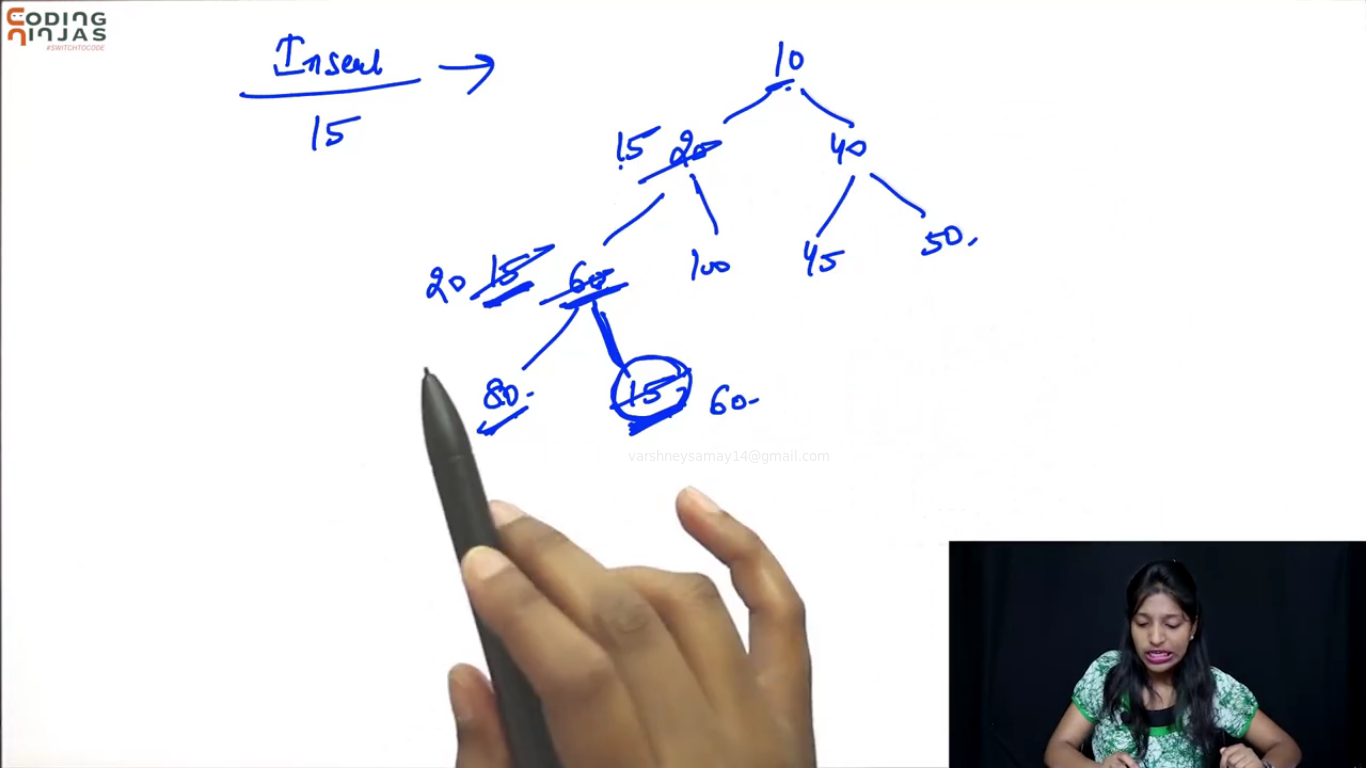 CODING
NINJAS
#SWITCHTOCODE
Insert →
15
10
15 20 40
20 15 60 100 45 50.
80. 15 60.
varshneysamay14@gmail.com